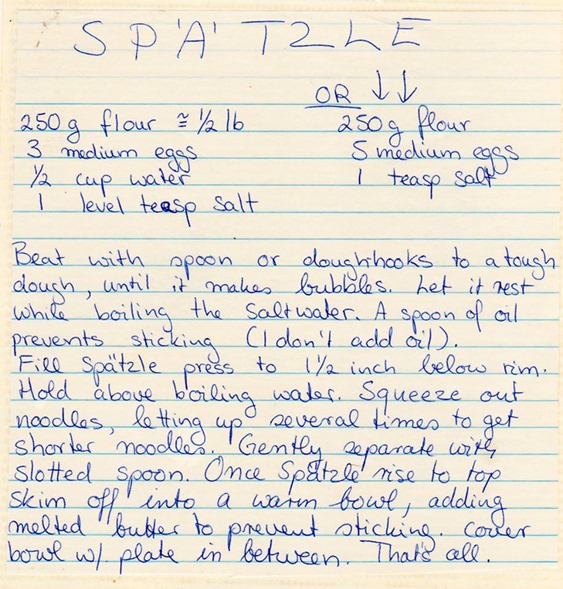 SPÄTZLE
OR ↓↓
250g flour ≅ ½ lb 250g flour
3 medium eggs 5 medium eggs
½ cup water 1 teasp salt
1 level teasp salt
Beat with spoon or doughhooks to a tough
dough, until it makes bubbles. Let it rest
while boiling the saltwater. A spoon of oil
prevents sticking (I don't add oil).
Fill Spätzle press to 1½ inch below rim.
Hold above boiling water. Squeeze out
noodles, letting up several times to get
shorter noodles. Gently separate with
slotted spoon. Once Spätzle rise to top
skim off into a warm bowl, adding
melted butter to prevent sticking. Cover
bowl w/ plate in between. That's all.